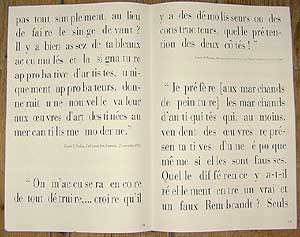 pas tout simplement, au lieu
de faire le singe devant ?
Il y a bien assez de tableaux
accumulés et la signature
approbative d'artistes, u-
niquement approbateurs, don-
nerait une nouvelle valeur
aux œuvres d'art destinées au
mercantilisme moderne."
" On m'accusera encore
de tout détruire,... croire qu'il
y a des démolisseurs ou des
constructeurs, quelle préten-
tion des deux côtés !"
" Je préfère [aux marchands
de peinture] les marchands
d'antiquités qui, au moins,
vendent des œuvres repré-
sentatives d'une époque
même si elles sont fausses.
Quelle différence y a-t-il
réellement entre un vrai et
un faux Rembrandt ? Seuls